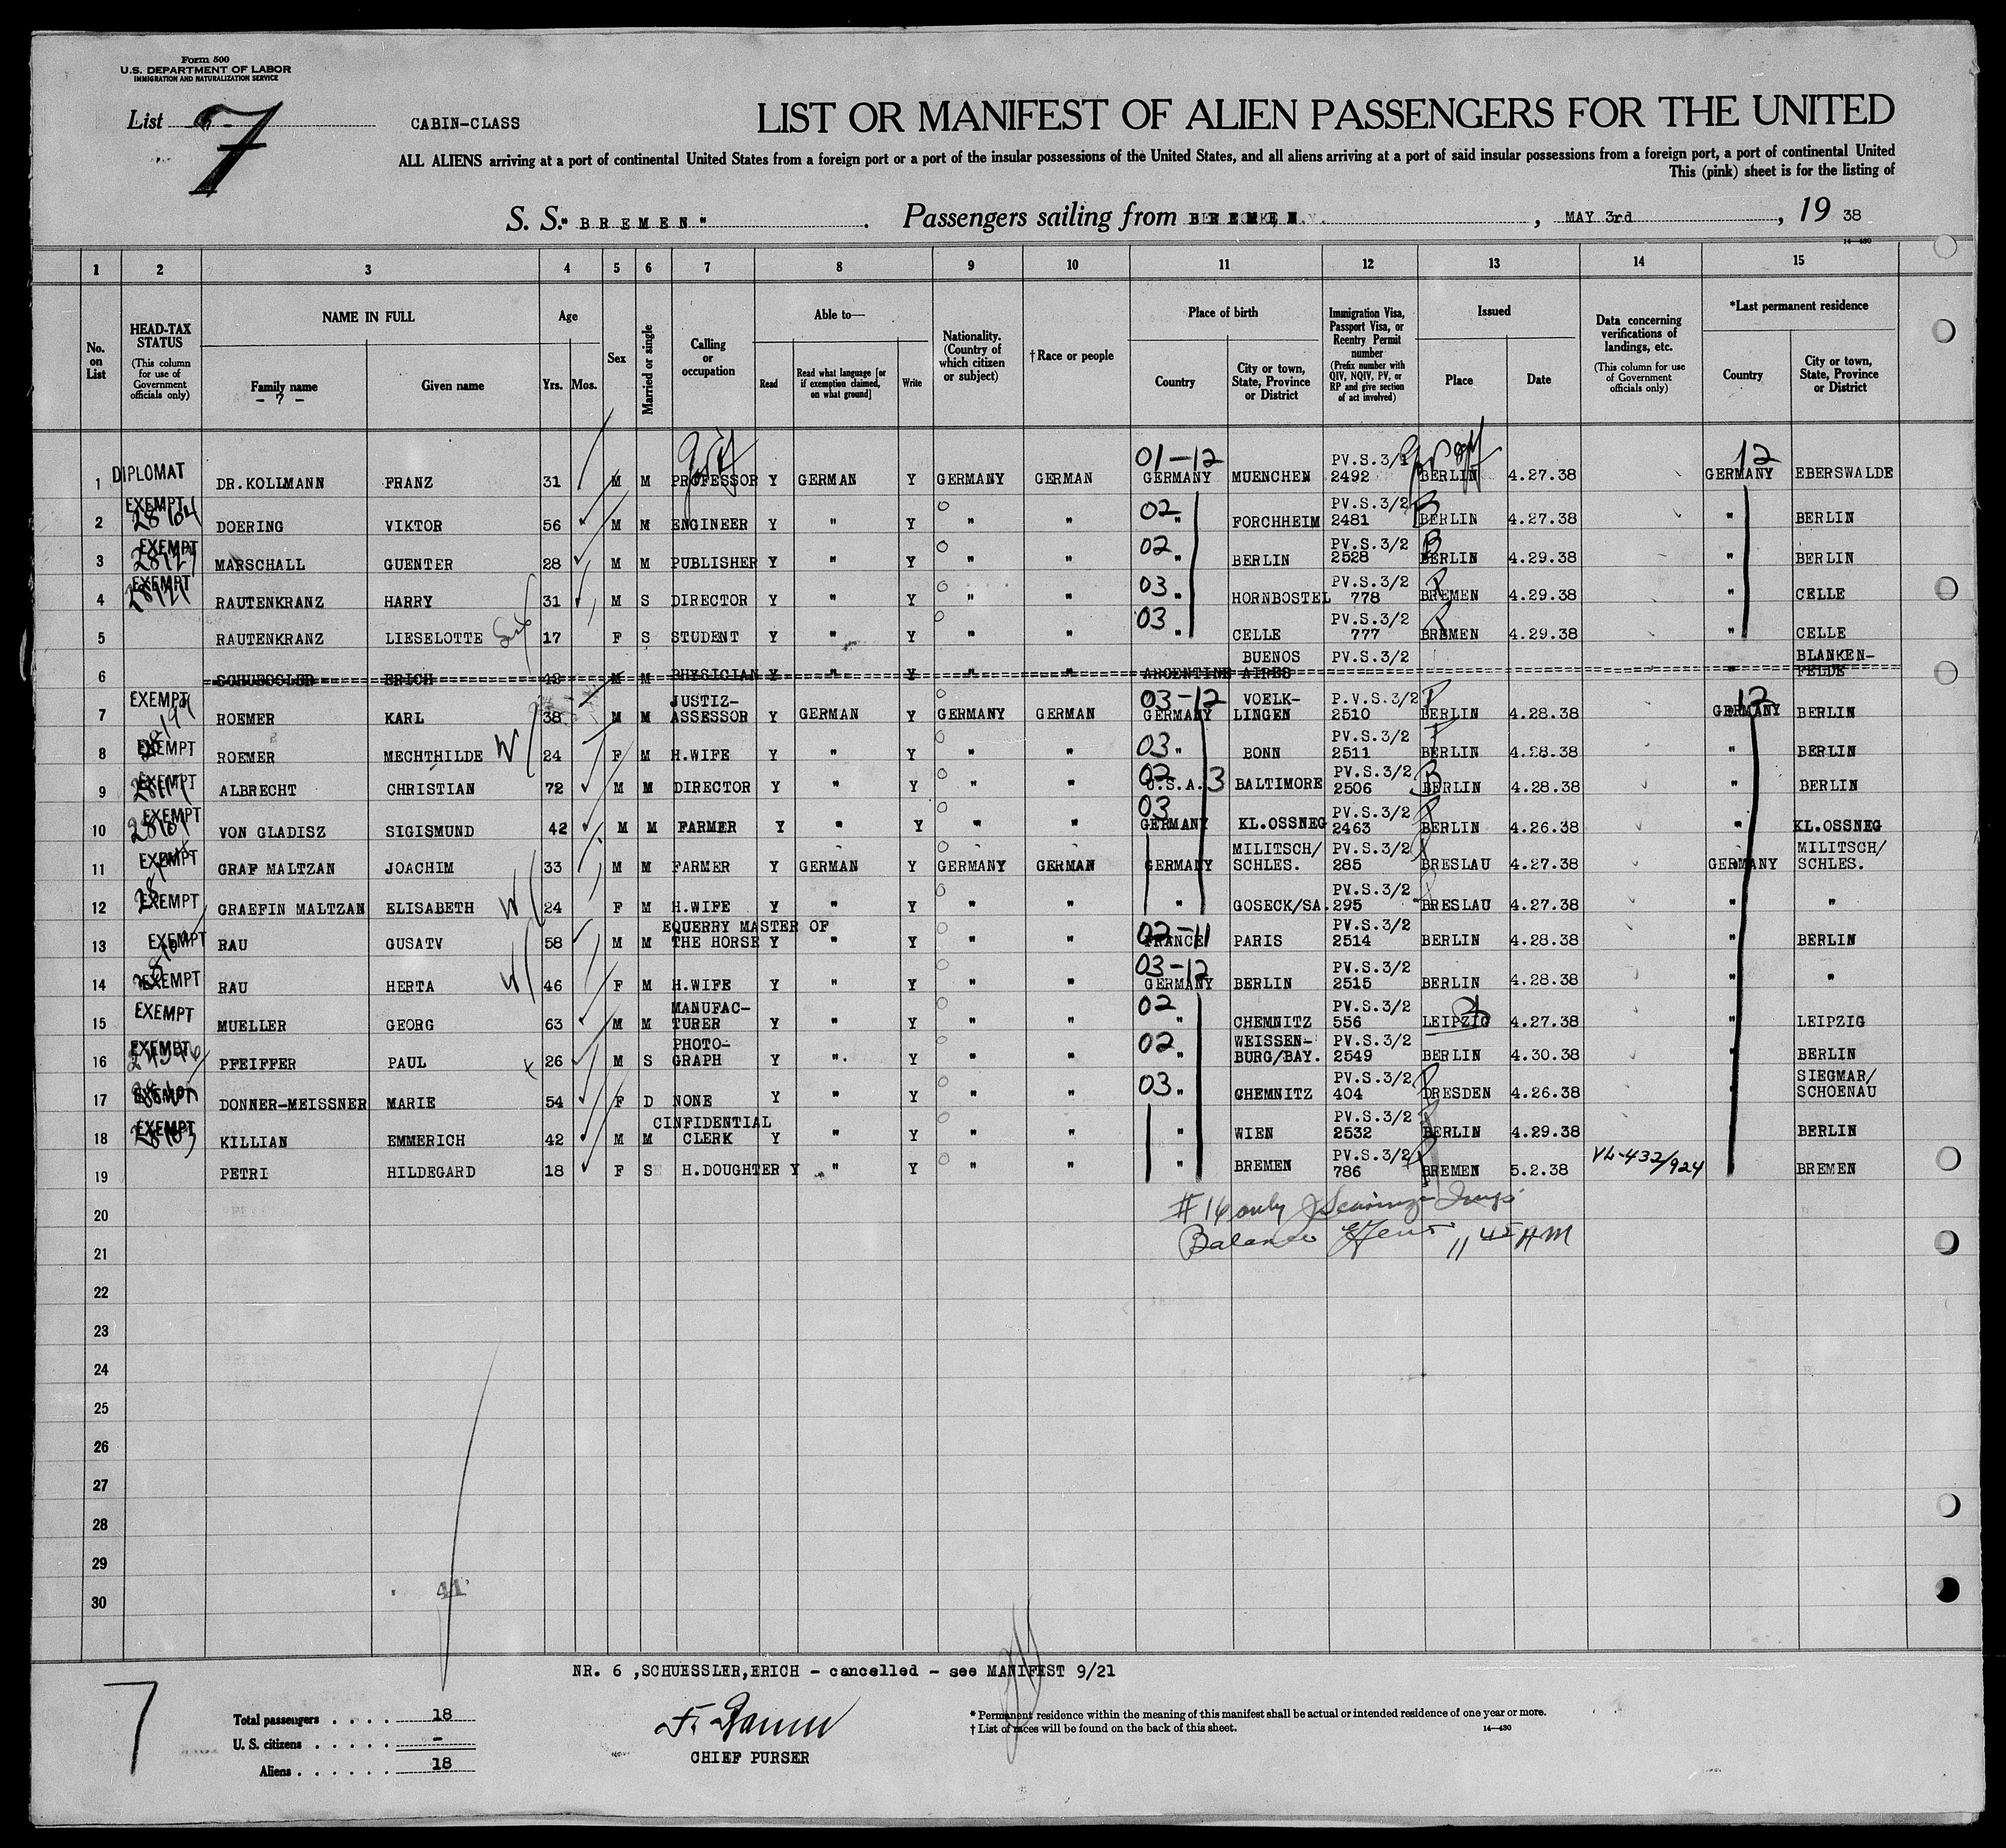 Form 500
U.S. DEPARTMENT OF LABOR
IMMIGRATION AND NATURALIZATION SERVICE
List 7
CABIN-CLASS
LIST OR MANIFEST OF ALIEN PASSENGERS FOR THE UNITED
ALL ALIENS arriving at a port of continental United States from a foreign port or a port of the insular possessions of the United States, and all aliens arriving at a port of said insular possessions from a foreign port, a port of continental United
This (pink) sheet is for the listing of
S. S. "BREMEN" . Passengers sailing from BREMEN , MAY 3rd , 19 38
14—430
1 2 3 4 5 6 7 8 9 10 11 12 13 14 15
No. on List
HEAD-TAX STATUS (This column for use of Government officials only)
NAME IN FULL Family name - 7 - Given name
Age Yrs. Mos.
Sex
Married or single
Calling or occupation
Able to— Read Read what language [or if exemption claimed, on what ground] Write
Nationality. (Country of which citizen or subject)
†Race or people
Place of birth Country City or town, State, Province or District
Immigration Visa, Passport Visa, or Reentry Permit number (Prefix number with QIV, NQIV, PV, or RP and give section of act involved)
Issued Place Date
Data concerning verifications of landings, etc. (This column for use of Government officials only)
*Last permanent residence Country City or town, State, Province or District
1 DIPLOMAT DR.KOLLMANN FRANZ 31 M M PROFESSOR Y GERMAN Y GERMANY GERMAN 01-12 GERMANY MUENCHEN PV.S.3/ 2492 BERLIN 4.27.38 12 GERMANY EBERSWALDE
2 EXEMPT DOERING VIKTOR 56 M M ENGINEER Y " Y " " 02 " FORCHHEIM PV.S.3/2 2481 BERLIN 4.27.38 " BERLIN
3 EXEMPT MARSCHALL GUENTER 28 M M PUBLISHER Y " Y " " 02 " BERLIN PV.S.3/2 2528 BERLIN 4.29.38 " BERLIN
4 EXEMPT RAUTENKRANZ HARRY 31 M S DIRECTOR Y " Y " " 03 " HORNBOSTEL PV.S.3/2 778 BREMEN 4.29.38 " CELLE
5 RAUTENKRANZ LIESELOTTE 17 F S STUDENT Y " Y " " 03 " CELLE PV.S.3/2 777 BREMEN 4.29.38 " CELLE
6 SCHUESSLER ERICH 43 M M PHYSICIAN Y " Y " " ARGENTINE BUENOS AIRES PV.S.3/2 " BLANKEN-FELDE
7 EXEMPT ROEMER KARL 38 M M JUSTIZ-ASSESSOR Y GERMAN Y GERMANY GERMAN 03-12 GERMANY VOELK-LINGEN P.V.S.3/2 2510 BERLIN 4.28.38 12 GERMANY BERLIN
8 EXEMPT ROEMER MECHTHILDE W 24 F M H.WIFE Y " Y " " 03 " BONN PV.S.3/2 2511 BERLIN 4.28.38 " BERLIN
9 EXEMPT ALBRECHT CHRISTIAN 72 M M DIRECTOR Y " Y " " 02 U.S.A. 3 BALTIMORE PV.S.3/2 2506 BERLIN 4.28.38 " BERLIN
10 EXEMPT VON GLADISZ SIGISMUND 42 M M FARMER Y " Y " " 03 GERMANY KL.OSSNEG PV.S.3/2 2463 BERLIN 4.26.38 " KL.OSSNEG
11 EXEMPT GRAF MALTZAN JOACHIM 33 M M FARMER Y GERMAN Y GERMANY GERMAN GERMANY MILITSCH/SCHLES. PV.S.3/2 285 BRESLAU 4.27.38 GERMANY MILITSCH/SCHLES.
12 EXEMPT GRAEFIN MALTZAN ELISABETH W 24 F M H.WIFE Y " Y " " " GOSECK/SA. PV.S.3/2 295 BRESLAU 4.27.38 " "
13 EXEMPT RAU GUSATV 58 M M EQUERRY MASTER OF THE HORSE Y " Y " " 02-11 FRANCE PARIS PV.S.3/2 2514 BERLIN 4.28.38 " BERLIN
14 EXEMPT RAU HERTA W 46 F M H.WIFE Y " Y " " 03-12 GERMANY BERLIN PV.S.3/2 2515 BERLIN 4.28.38 " "
15 EXEMPT MUELLER GEORG 63 M M MANUFAC-TURER Y " Y " " 02 " CHEMNITZ PV.S.3/2 556 LEIPZIG 4.27.38 " LEIPZIG
16 EXEMPT PFEIFFER PAUL x 26 M S PHOTO-GRAPH Y " Y " " 02 " WEISSEN-BURG/BAY. PV.S.3/2 2549 BERLIN 4.30.38 " BERLIN
17 EXEMPT DONNER-MEISSNER MARIE 54 F D NONE Y " Y " " 03 " CHEMNITZ PV.S.3/2 404 DRESDEN 4.26.38 " SIEGMAR/SCHOENAU
18 EXEMPT KILLIAN EMMERICH 42 M M CINFIDENTIAL CLERK Y " Y " " " WIEN PV.S.3/2 2532 BERLIN 4.29.38 " BERLIN
19 PETRI HILDEGARD 18 F S H.DOUGHTER Y " Y " " " BREMEN PV.S.3/2 786 BREMEN 5.2.38 VL-432/924 " BREMEN
20 #16 only
21 Balance 11 45 AM
22
23
24
25
26
27
28
29
30
41
NR. 6 ,SCHUESSLER,ERICH - cancelled - see MANIFEST 9/21
7
Total passengers . . . . 18
U. S. citizens . . . . . -
Aliens . . . . . . 18
CHIEF PURSER
* Permanent residence within the meaning of this manifest shall be actual or intended residence of one year or more.
† List of races will be found on the back of this sheet.
14—430